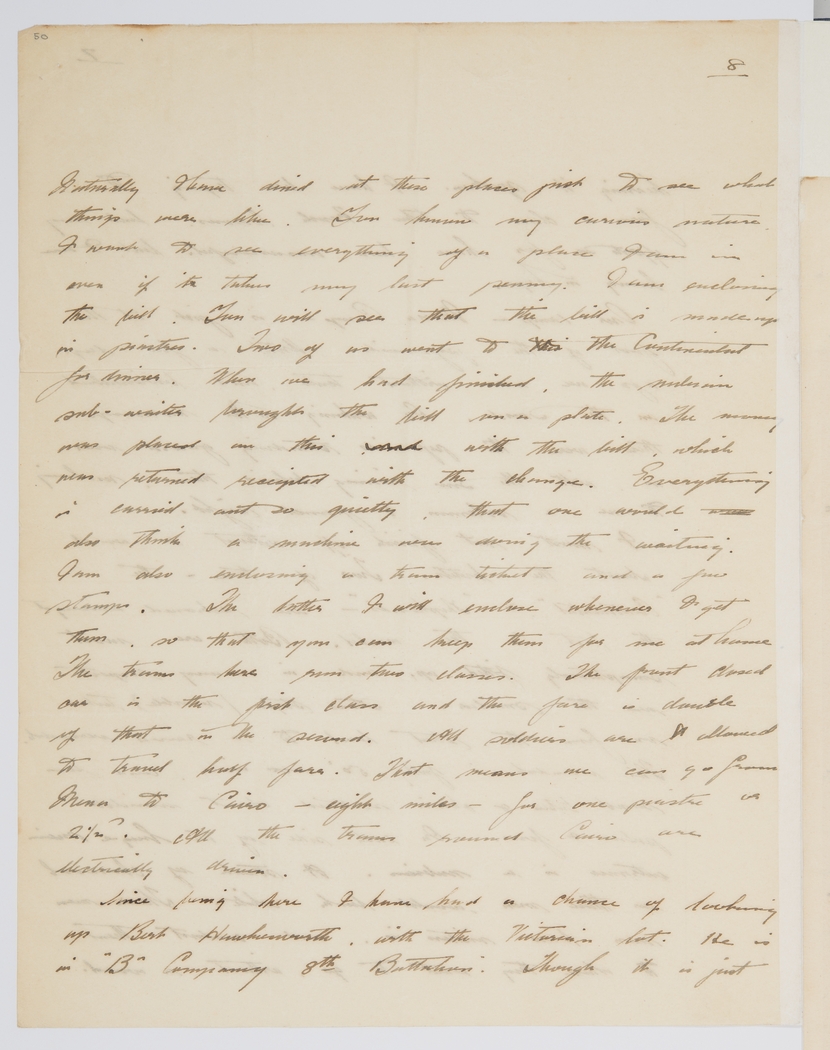 50
8
Naturally I have dined at these places just to see what
things were like. You know my curious nature.
I want to see everything of a place I am in
even if it takes my last penny. I am enclosing
the bill. You will see that the bill is made up
in piastres. Two of us went to this the Continental
for dinner. When we had finished, the nubian
sub-waiter brought the bill on a plate. The money
was placed on this and with the bill, which
was returned receipted with the change. Everything
is carried out so quietly, that one would
also think a machine was doing the waiting.
I am also enclosing a tram ticket and a few
stamps. The latter I will enclose whenever I get
them, so that you can keep them for me at home
The trams here run two classes. The front closed
one is the first class and the fare is double
of that in the second. All soldiers are allowed
to travel half fare. That means we can go from
Mena to Cairo - eight miles - for one piastre or
2½d. All the trams round Cairo are
electrically driven.
Since being here I have had a chance of looking
up Bert Hawkesworth, with the Victorian lot. He is
in "B" Company 8th Battalion. Though it is just